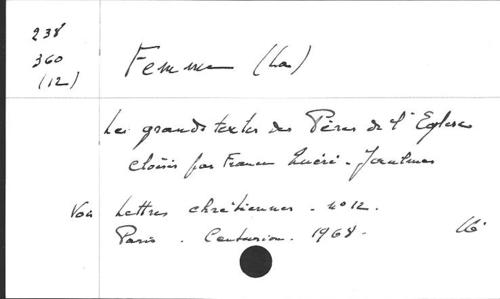 238
360
(12)
Femme (La)
Les grands textes des Pères de l'Eglise
choisis par France Quéré-Jaulmes
Voir Lettres chrétiennes. n° 12.
Paris. Centurion. 1968.